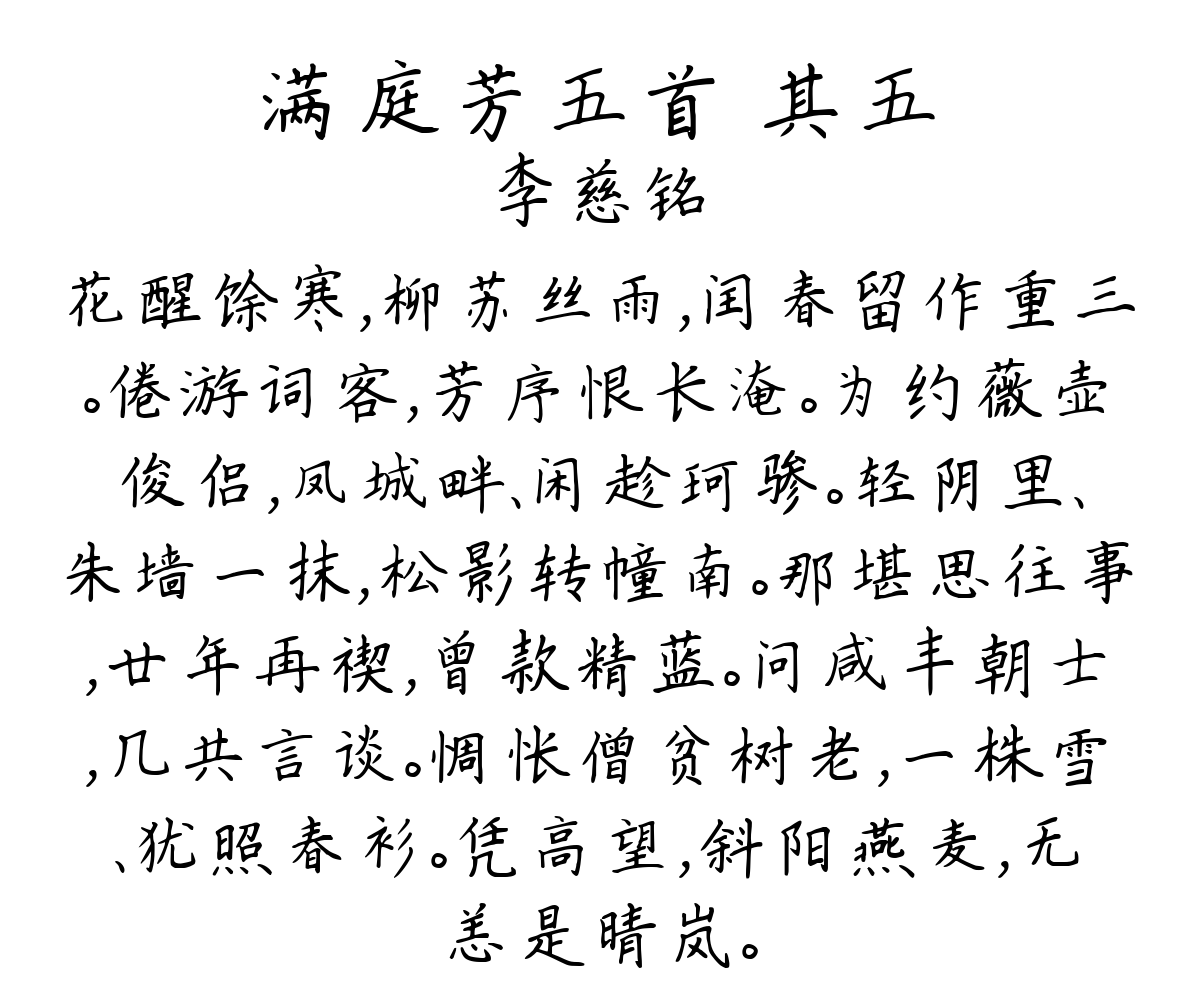 满庭芳五首 其五
李慈铭
花醒馀寒,柳苏丝雨,闰春留作重三
。倦游词客,芳序恨长淹。为约薇壶
俊侣,凤城畔、闲趁珂骖。轻阴里、
朱墙一抹,松影转幢南。那堪思往事
,廿年再禊,曾款精蓝。问咸丰朝士
,几共言谈。惆怅僧贫树老,一株雪
、犹照春衫。凭高望,斜阳燕麦,无
恙是晴岚。